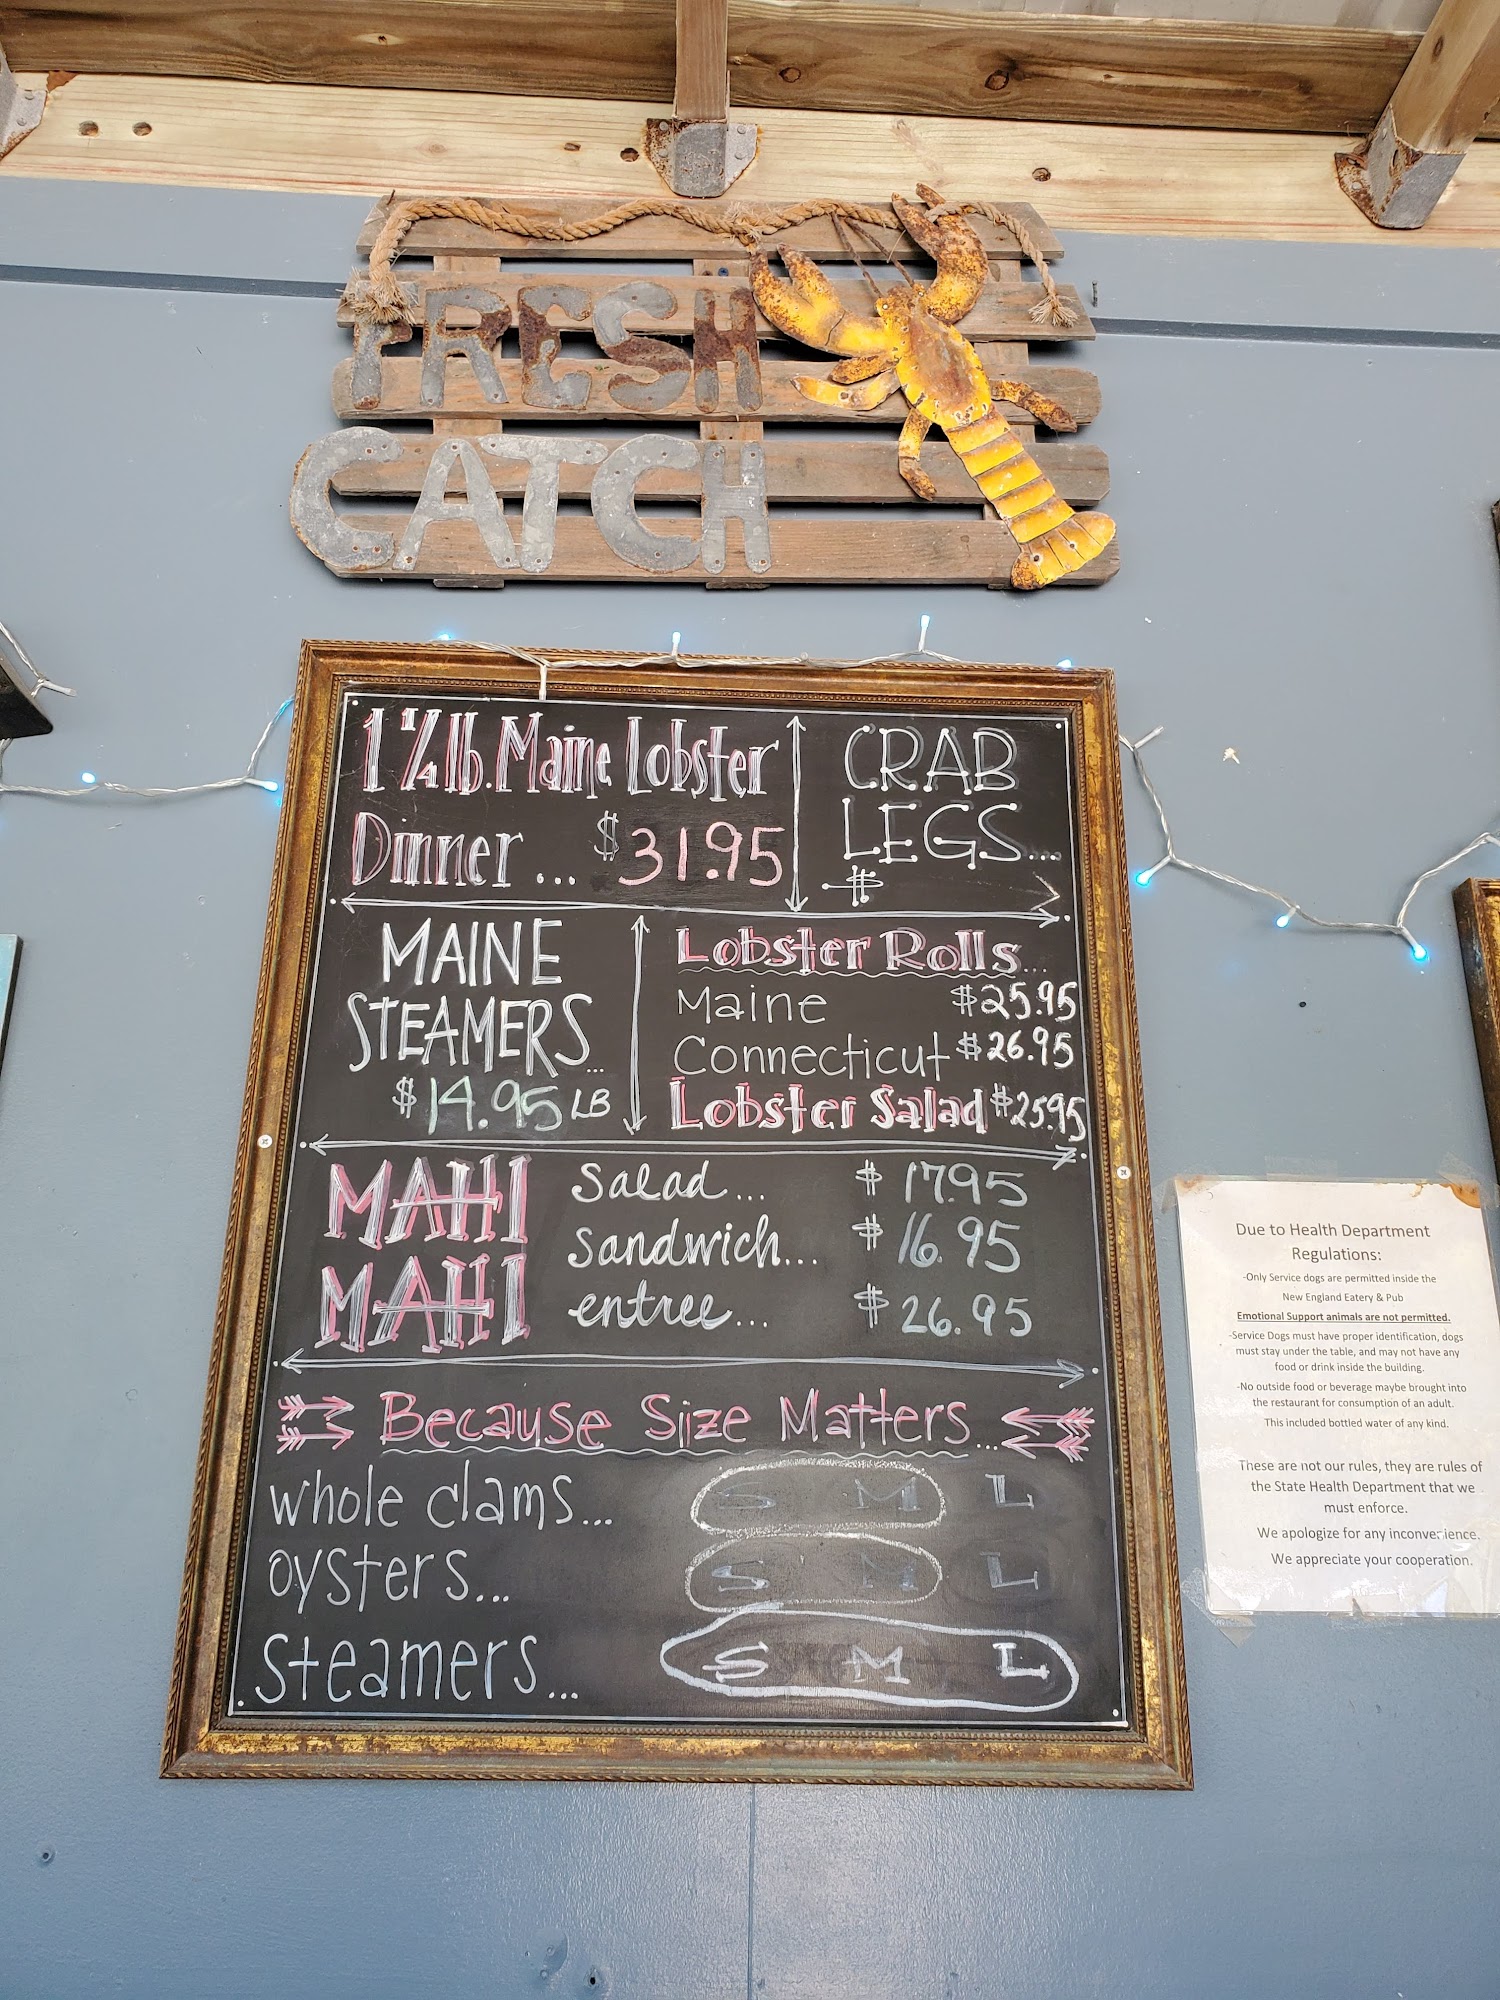 FRESH
CATCH
1 1/4 lb. Maine Lobster
Dinner ... $31.95
CRAB
LEGS...
$
MAINE
STEAMERS...
$14.95 LB
Lobster Rolls...
Maine $25.95
Connecticut $26.95
Lobster Salad $25.95
MAHI
MAHI
Salad... $17.95
Sandwich... $16.95
entree... $26.95
Because Size Matters...
whole clams... S M L
oysters... S M L
Steamers... S M L
Due to Health Department
Regulations:
-Only Service dogs are permitted inside the
New England Eatery & Pub
Emotional Support animals are not permitted.
-Service Dogs must have proper identification, dogs
must stay under the table, and may not have any
food or drink inside the building.
-No outside food or beverage maybe brought into
the restaurant for consumption of an adult.
This included bottled water of any kind.
These are not our rules, they are rules of
the State Health Department that we
must enforce.
We apologize for any inconvenience.
We appreciate your cooperation.